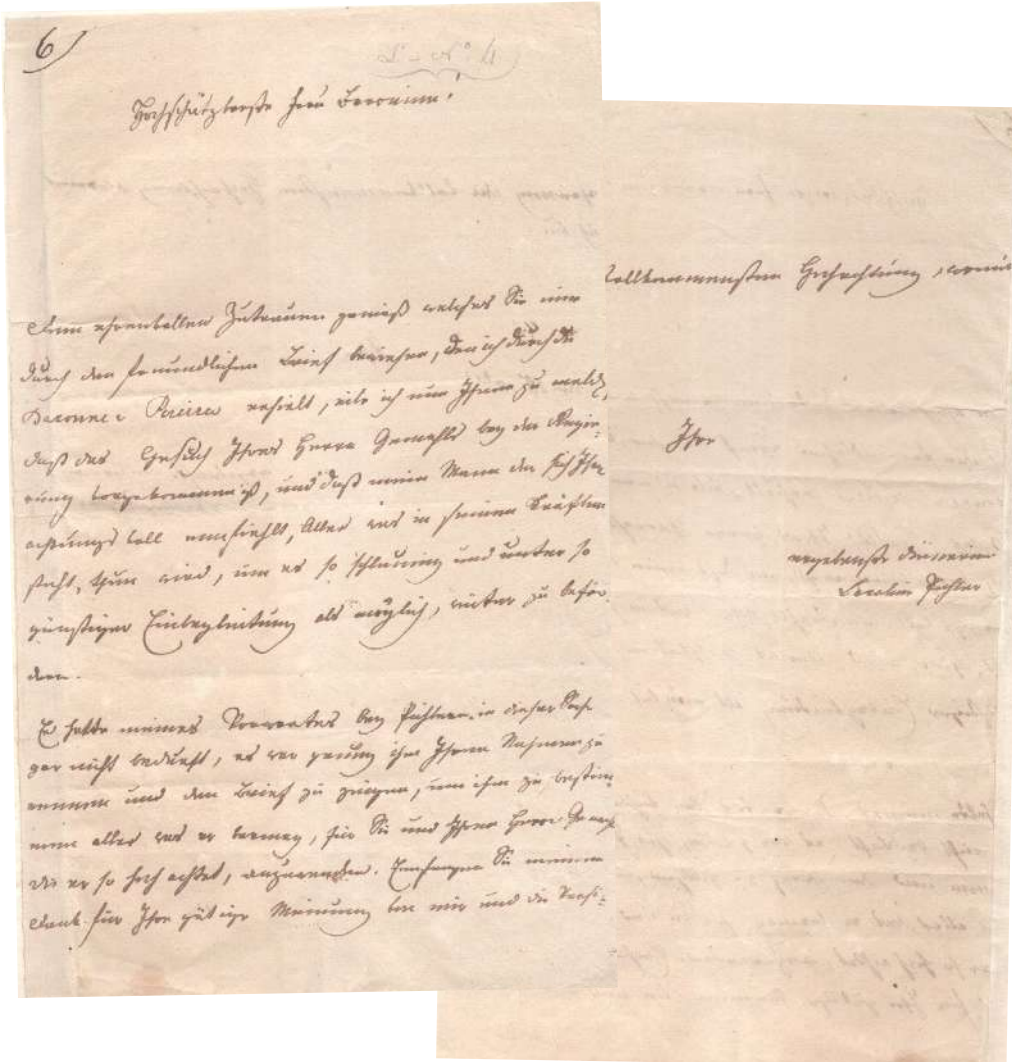 6)
L = No. 4
Hochschätzbarste Frau Baroninn!
Dem ehrenvollen Zutrauen gemäß welches Sie mir
durch den freundlichen Brief beweisen, den ich durch die
Baronne v Pereira erhielt, eile ich nun Ihnen zu meld
daß das Gesuch Ihres Herrn Gemahls bey der Regie-
rung vorgekommen ist, und daß mein Mann der sich Ihn
achtungsvoll empfiehlt, Alles was in seinen Kräften
steht, thun wird, um es so schleunig und unter so
günstiger Einbegleitung als möglich, weiter zu beför-
dern.
Es hätte meines Vorwortes bey Pichlern in dieser Sache
gar nicht bedurft, es war genug ihm Ihren Nahmen zu
nennen und den Brief zu zeigen, um ihn zu bestim
men alles was er vermag, für Sie und Ihren Herrn Gemahl
die er so hoch achtet, anzuwenden. Empfangen Sie meinen
Dank für Ihre gütige Meinung von mir und die Versi-
vollkommensten Hochachtung, womit
Ihre
ergebenste Dienerin
Caroline Pichler